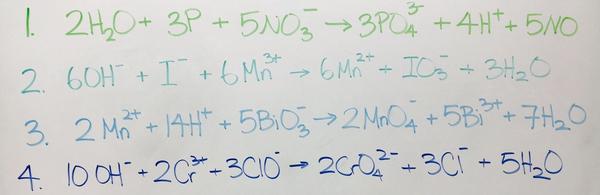 1. 2H₂O + 3P + 5NO₃⁻ → 3PO₄³⁻ + 4H⁺ + 5NO
2. 6OH⁻ + I⁻ + 6Mn³⁺ → 6Mn²⁺ + IO₃⁻ + 3H₂O
3. 2Mn²⁺ + 14H⁺ + 5BiO₃⁻ → 2MnO₄⁻ + 5Bi³⁺ + 7H₂O
4. 10OH⁻ + 2Cr³⁺ + 3ClO⁻ → 2CrO₄²⁻ + 3Cl⁻ + 5H₂O